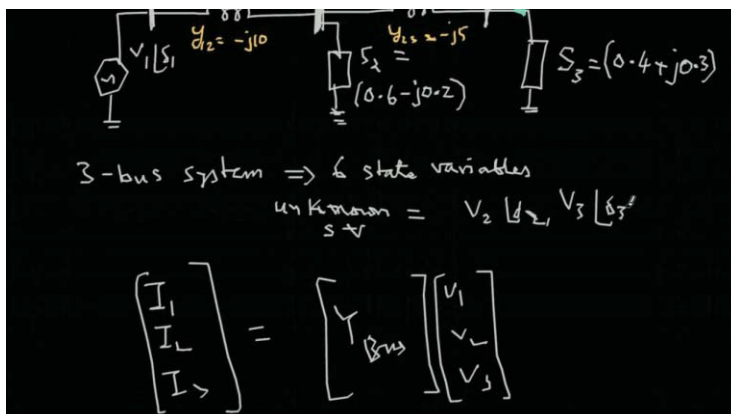 V₁⌊δ₁
y₁₂ = -j10
S₂ =
(0.6-j0.2)
y₂₃ = -j5
S₃ = (0.4+j0.3)
3-bus system => 6 state variables
unknown = V₂⌊δ₂, V₃⌊δ₃
s v
[I₁ I₂ I₃] = [Y Bus] [V₁ V₂ V₃]